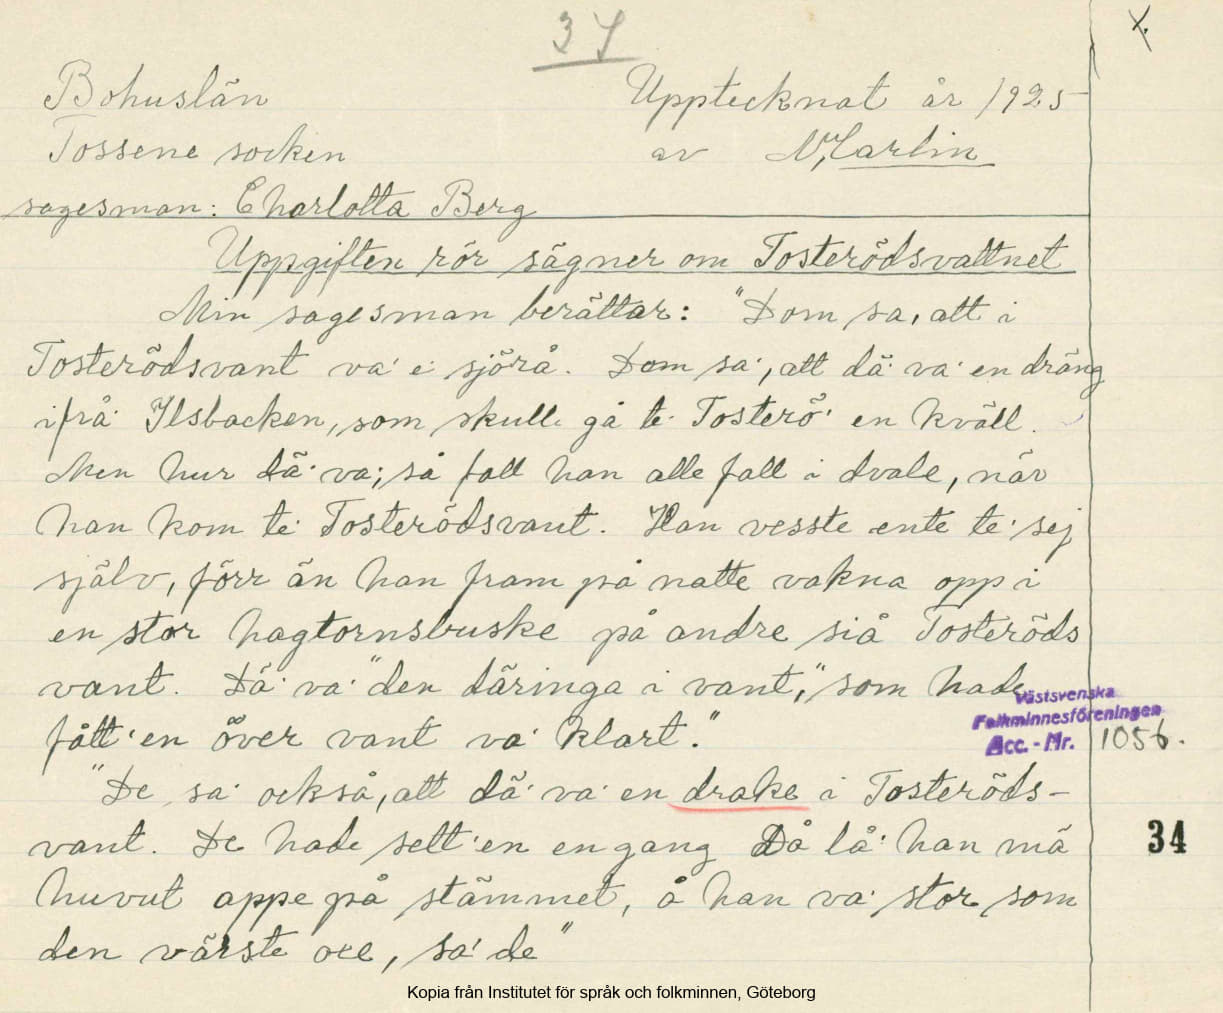 34
Bohuslän
Upptecknat år 1925
Tossene socken
av
sagesman: Charlotta Berg
Uppgiften rör sägner om Tosterödsvattnet
Min sagesman berättar: "Dom sa, att i
Tosterödsvant va' e' sjörå. Dom sa', att dä' va' en dräng
ifrå' Ilsbacken, som skulle gå te' Tosterö' en kväll.
Men hur dä' va', så fall han alle fall i dvale, när
han kom te' Tosterödsvant. Han vesste ente te' sej
själv, förr än han fram på natte vakna opp i
en stor hagtornsbuske på andre siå Tosteröds
vant. Dä' va' "den däringa i vant", som hade
fått'en över vant va' klart."
"De sa' också, att dä' va' en drake i Tosteröds-
vant. De hade sett'en en gang Då lå' han mä
huvut oppe på stämmet, å han va' stor som
den värste oxe, sa' de"
Västsvenska
Folkminnesföreningen
Acc. - Nr. 1056.
34
Kopia från Institutet för språk och folkminnen, Göteborg